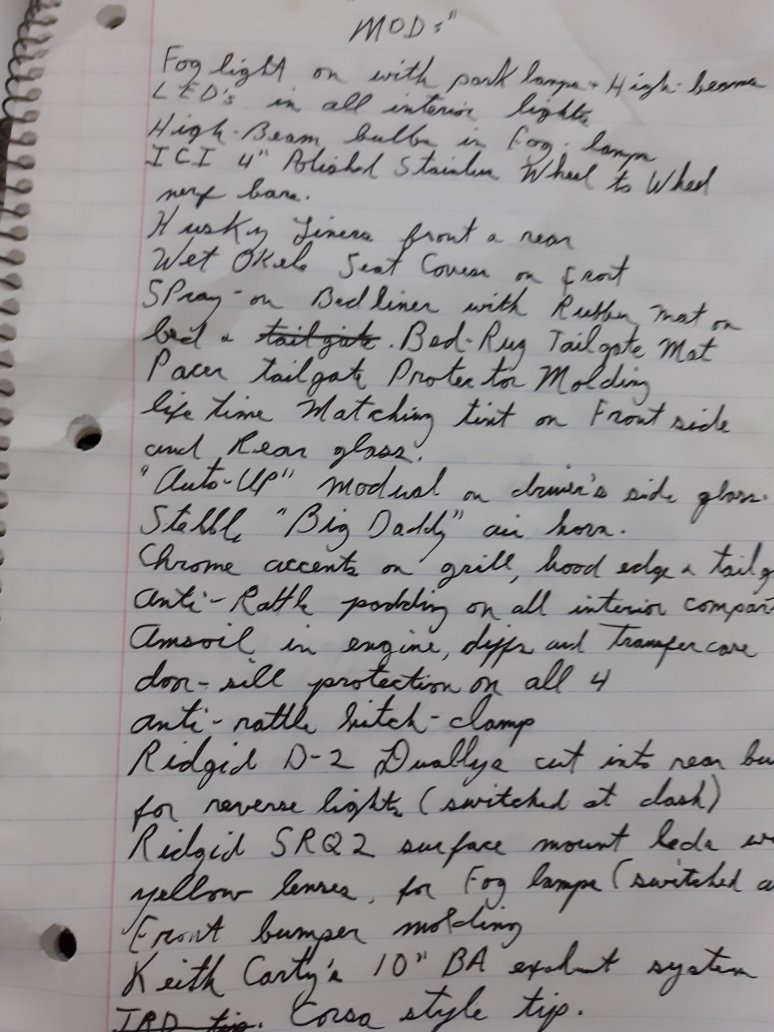 "MODs"
Fog light on with park lamps + High-beams
LED's in all interior lights
High-Beam bulbs in Fog-lamps
ICI 4" Polished Stainless Wheel to Wheel
nerf bars.
Husky Liners front & rear
Wet Okole Seat Covers on front
SPray-on Bedliner with Rubber mat on
bed & tailgate. Bed-Rug Tailgate Mat
Pacer tailgate Protector Molding
life time Matching tint on Front side
and Rear glass.
"Auto-UP" modual on driver's side glass.
Stebbl "Big Daddy" air horn.
Chrome accents on grill, hood edge & tailg
anti-Rattle padding on all interior compar
Amsoil in engine, diffs and Transfercase
door-sill protection on all 4
anti-rattle hitch-clamp
Ridgid D-2 Duallys cut into rear bu
for reverse lights (switched at dash)
Ridgid SRQ2 surface mount leds w
yellow lenses, for Fog lamps (switched a
Front bumper molding
Keith Carty's 10" BA exhaust system
TRD tip. Corsa style tip.